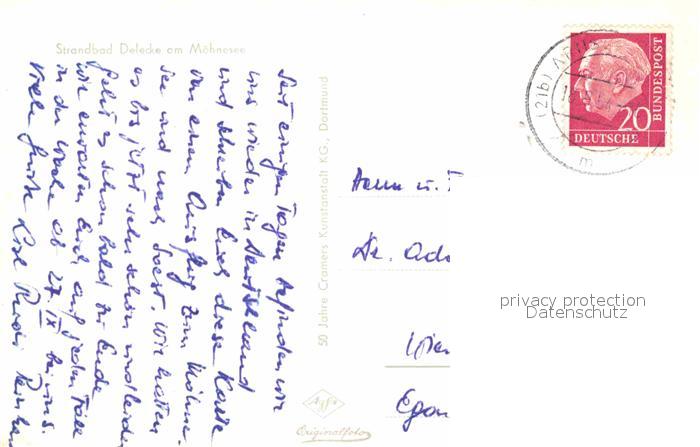 Strandbad Delecke am Möhnesee
Seit einigen Tagen befinden wir
uns wieder in Deutschland
und schreiben Euch diese Karte
von einem Ausflug zum Möhne-
see und nach Soest. Wir hatten
es bis jetzt sehr schön und leider
geht es schon bald zu Ende
wir erwarten Euch auf jeden Fall
in der Woche ab 27. IX bei uns.
Viele Grüße
50 Jahre Cramers Kunstanstalt KG., Dortmund
Agfa
Originalfoto
(21b)
20
DEUTSCHE
BUNDESPOST
m
Herrn u.
Dr.
Wien
privacy protection
Datenschutz